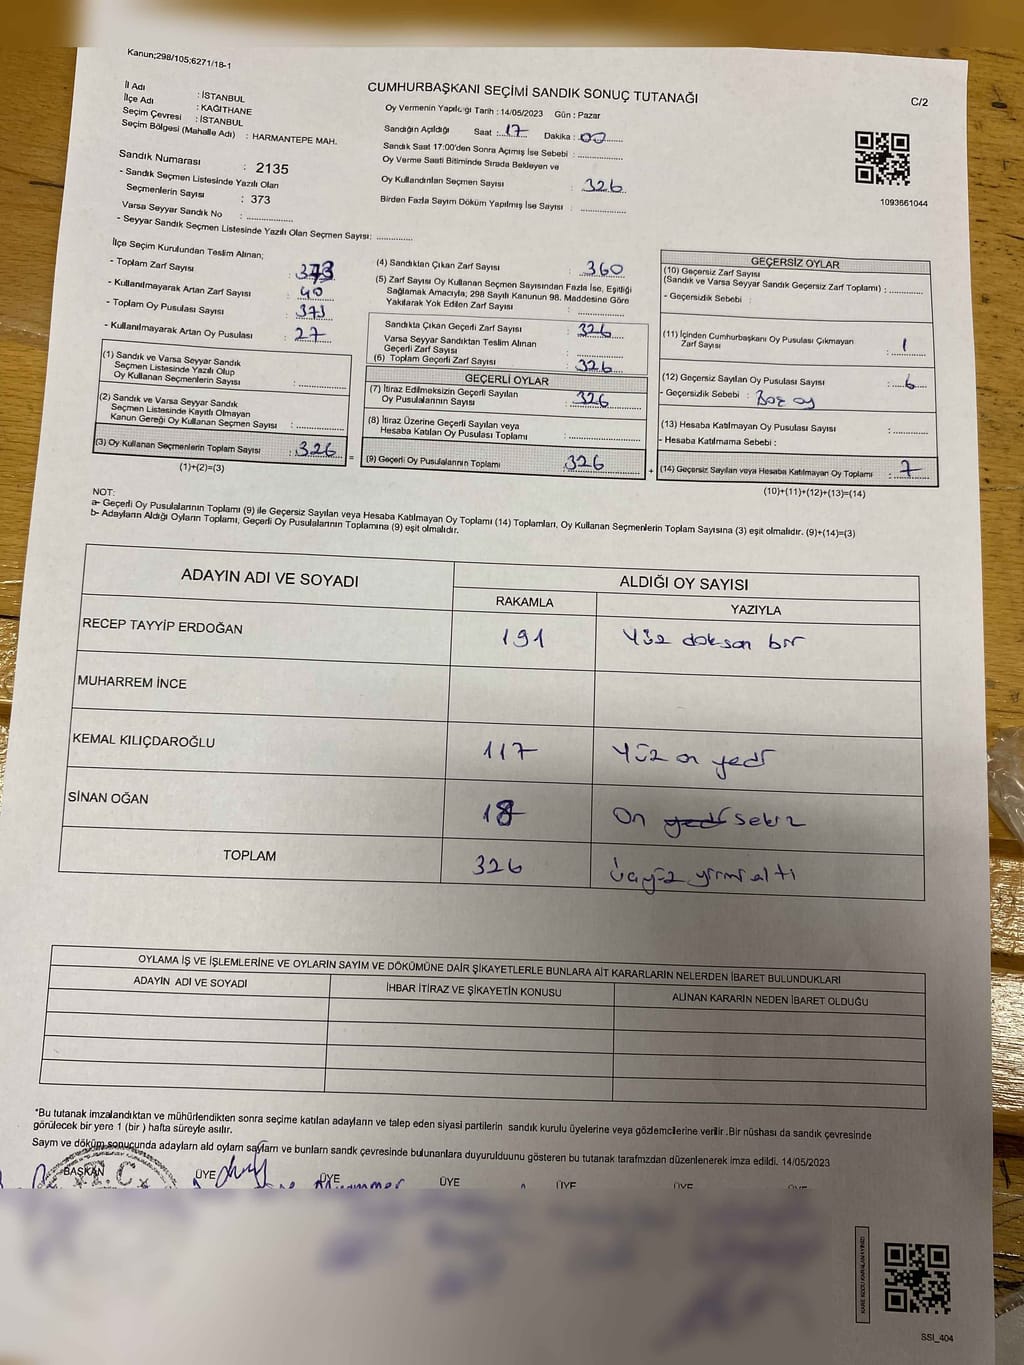 Kanun;298/105;6271/18-1
CUMHURBAŞKANI SEÇİMİ SANDIK SONUÇ TUTANAĞI
C/2
İl Adı : İSTANBUL
İlçe Adı : KAĞITHANE
Seçim Çevresi : İSTANBUL
Seçim Bölgesi (Mahalle Adı) : HARMANTEPE MAH.
Sandık Numarası : 2135
- Sandık Seçmen Listesinde Yazılı Olan
Seçmenlerin Sayısı : 373
Varsa Seyyar Sandık No : ................
- Seyyar Sandık Seçmen Listesinde Yazılı Olan Seçmen Sayısı: .............
Oy Vermenin Yapıldığı Tarih : 14/05/2023 Gün : Pazar
Sandığın Açıldığı Saat : 17 Dakika : 00
Sandık Saat 17:00'den Sonra Açımış İse Sebebi : ................
Oy Verme Saati Bitiminde Sırada Bekleyen ve
Oy Kullandırılan Seçmen Sayısı : 326
Birden Fazla Sayım Döküm Yapılmış İse Sayısı : ................
1093661044
İlçe Seçim Kurulundan Teslim Alınan;
- Toplam Zarf Sayısı : 373
- Kullanılmayarak Artan Zarf Sayısı : 40
- Toplam Oy Pusulası Sayısı : 373
- Kullanılmayarak Artan Oy Pusulası : 27
(1) Sandık ve Varsa Seyyar Sandık
Seçmen Listesinde Yazılı Olup
Oy Kullanan Seçmenlerin Sayısı : ................
(2) Sandık ve Varsa Seyyar Sandık
Seçmen Listesinde Kayıtlı Olmayan
Kanun Gereği Oy Kullanan Seçmen Sayısı : ................
(3) Oy Kullanan Seçmenlerin Toplam Sayısı : 326
(1)+(2)=(3)
=
(4) Sandıktan Çıkan Zarf Sayısı : 360
(5) Zarf Sayısı Oy Kullanan Seçmen Sayısından Fazla İse, Eşitliği
Sağlamak Amacıyla; 298 Sayılı Kanunun 98. Maddesine Göre
Yakılarak Yok Edilen Zarf Sayısı : ................
Sandıkta Çıkan Geçerli Zarf Sayısı : 326
Varsa Seyyar Sandıktan Teslim Alınan
Geçerli Zarf Sayısı : ................
(6) Toplam Geçerli Zarf Sayısı : 326
GEÇERLİ OYLAR
(7) İtiraz Edilmeksizin Geçerli Sayılan
Oy Pusulalarının Sayısı : 326
(8) İtiraz Üzerine Geçerli Sayılan veya
Hesaba Katılan Oy Pusulası Toplamı : ................
(9) Geçerli Oy Pusulalarının Toplamı 326
+
GEÇERSİZ OYLAR
(10) Geçersiz Zarf Sayısı
(Sandık ve Varsa Seyyar Sandık Geçersiz Zarf Toplamı) : .............
- Geçersizlik Sebebi :
(11) İçinden Cumhurbaşkanı Oy Pusulası Çıkmayan
Zarf Sayısı : 1
(12) Geçersiz Sayılan Oy Pusulası Sayısı : 6
- Geçersizlik Sebebi : Boş oy
(13) Hesaba Katılmayan Oy Pusulası Sayısı : .............
- Hesaba Katılmama Sebebi :
(14) Geçersiz Sayılan veya Hesaba Katılmayan Oy Toplamı : 7
(10)+(11)+(12)+(13)=(14)
NOT:
a- Geçerli Oy Pusulalarının Toplamı (9) ile Geçersiz Sayılan veya Hesaba Katılmayan Oy Toplamı (14) Toplamları, Oy Kullanan Seçmenlerin Toplam Sayısına (3) eşit olmalıdır. (9)+(14)=(3)
b- Adayların Aldığı Oyların Toplamı, Geçerli Oy Pusulalarının Toplamına (9) eşit olmalıdır.
ADAYIN ADI VE SOYADI
ALDIĞI OY SAYISI
RAKAMLA YAZIYLA
RECEP TAYYİP ERDOĞAN 191 Yüz doksan bir
MUHARREM İNCE
KEMAL KILIÇDAROĞLU 117 Yüz on yedi
SİNAN OĞAN 18 On yedi sekiz
TOPLAM 326 Üçyüz yirmi altı
OYLAMA İŞ VE İŞLEMLERİNE VE OYLARIN SAYIM VE DÖKÜMÜNE DAİR ŞİKAYETLERLE BUNLARA AİT KARARLARIN NELERDEN İBARET BULUNDUKLARI
ADAYIN ADI VE SOYADI İHBAR İTİRAZ VE ŞİKAYETİN KONUSU ALINAN KARARIN NEDEN İBARET OLDUĞU
*Bu tutanak imzalandıktan ve mühürlendikten sonra seçime katılan adayların ve talep eden siyasi partilerin sandık kurulu üyelerine veya gözlemcilerine verilir .Bir nüshası da sandık çevresinde
görülecek bir yere 1 (bir ) hafta süreyle asılır.
Sayım ve döküm sonucunda adayların aldı oyların sayıları ve bunların sandık çevresinde bulunanlara duyurulduunu gösteren bu tutanak tarafımzdan düzenlenerek imza edildi. 14/05/2023
BAŞKAN ÜYE ÜYE ÜYE ÜYE ÜYE ÜYE
T.C.
SSI_404